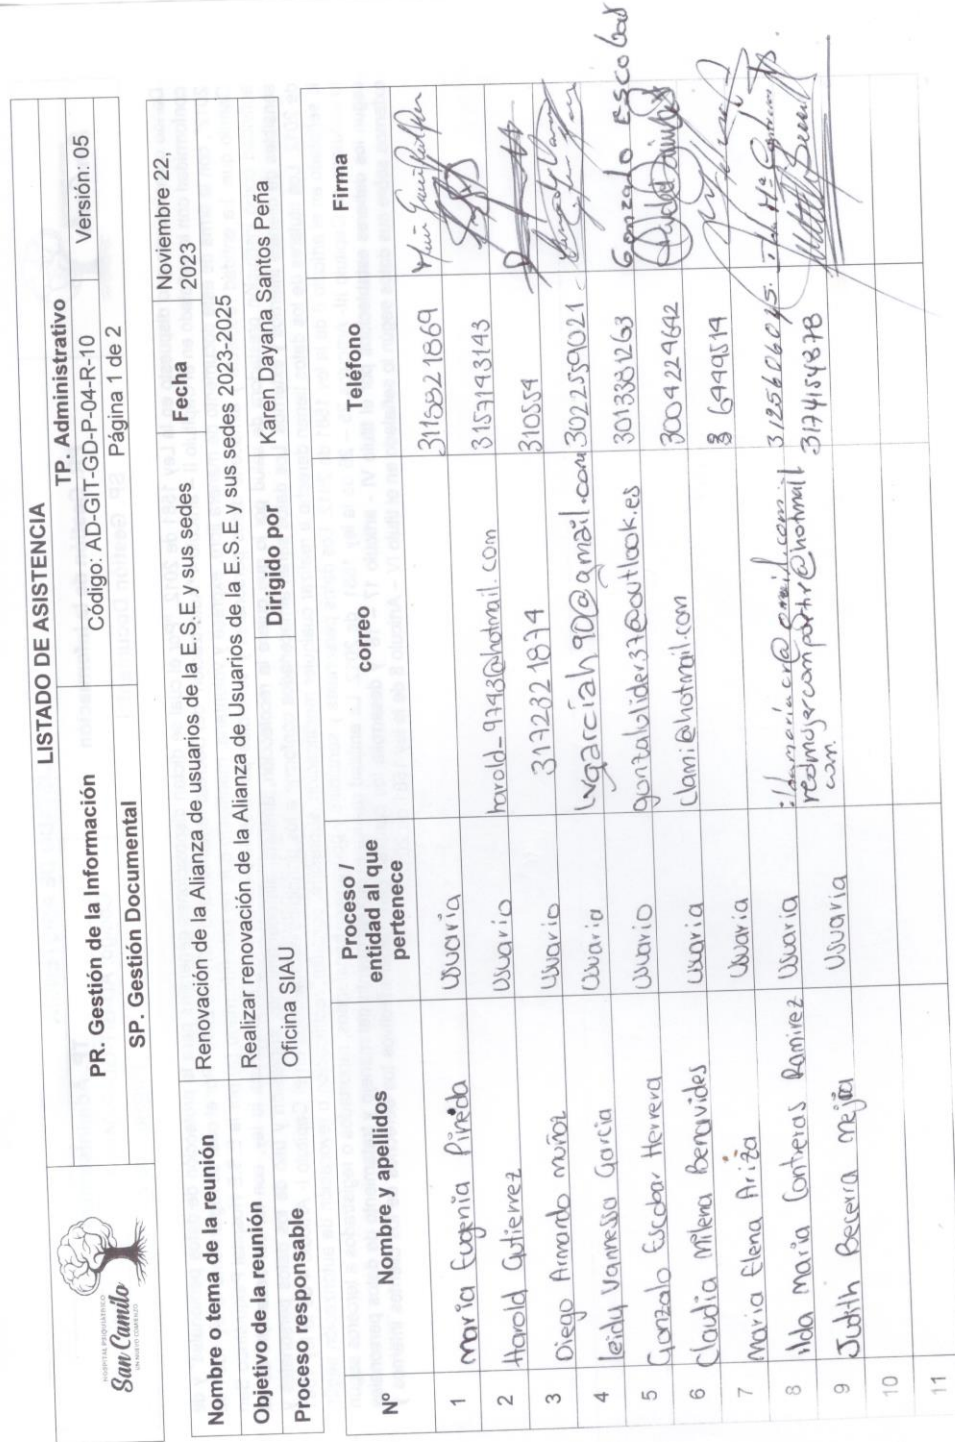 HOSPITAL PSIQUIÁTRICO
San Camilo
UN NUEVO COMIENZO
LISTADO DE ASISTENCIA
PR. Gestión de la Información
TP. Administrativo
SP. Gestión Documental
Código: AD-GIT-GD-P-04-R-10
Versión: 05
Página 1 de 2
Nombre o tema de la reunión
Renovación de la Alianza de usuarios de la E.S.E y sus sedes
Fecha
Noviembre 22,
2023
Objetivo de la reunión
Realizar renovación de la Alianza de Usuarios de la E.S.E y sus sedes 2023-2025
Proceso responsable
Oficina SIAU
Dirigido por
Karen Dayana Santos Peña
Nº Nombre y apellidos Proceso / entidad al que pertenece correo Teléfono Firma
1 maria Eugenia Pineda usuaria 3115821869
2 Harold Gutierrez usuario harold_9743@hotmail.com 3157143143
3 Diego Armando muñoz usuario 3172321874 310554
4 leidy vannessa Garcia usuaria lvgarciah90@gmail.com 3022559021
5 Gonzalo Escobar Herrera usuario gonzalolider37@outlook.es 3013381263 Gonzalo Escobar
6 Claudia milena Benavides usuaria clami@hotmail.com 3004224642
7 maria Elena Ariza usuaria 6449514
8 Ilda maria Contreras Ramirez usuaria ildamariacr@gmail.com 3125606045
9 Judith Becerra mejia usuaria redmujercompartir@hotmail 3174154878
com
10
11